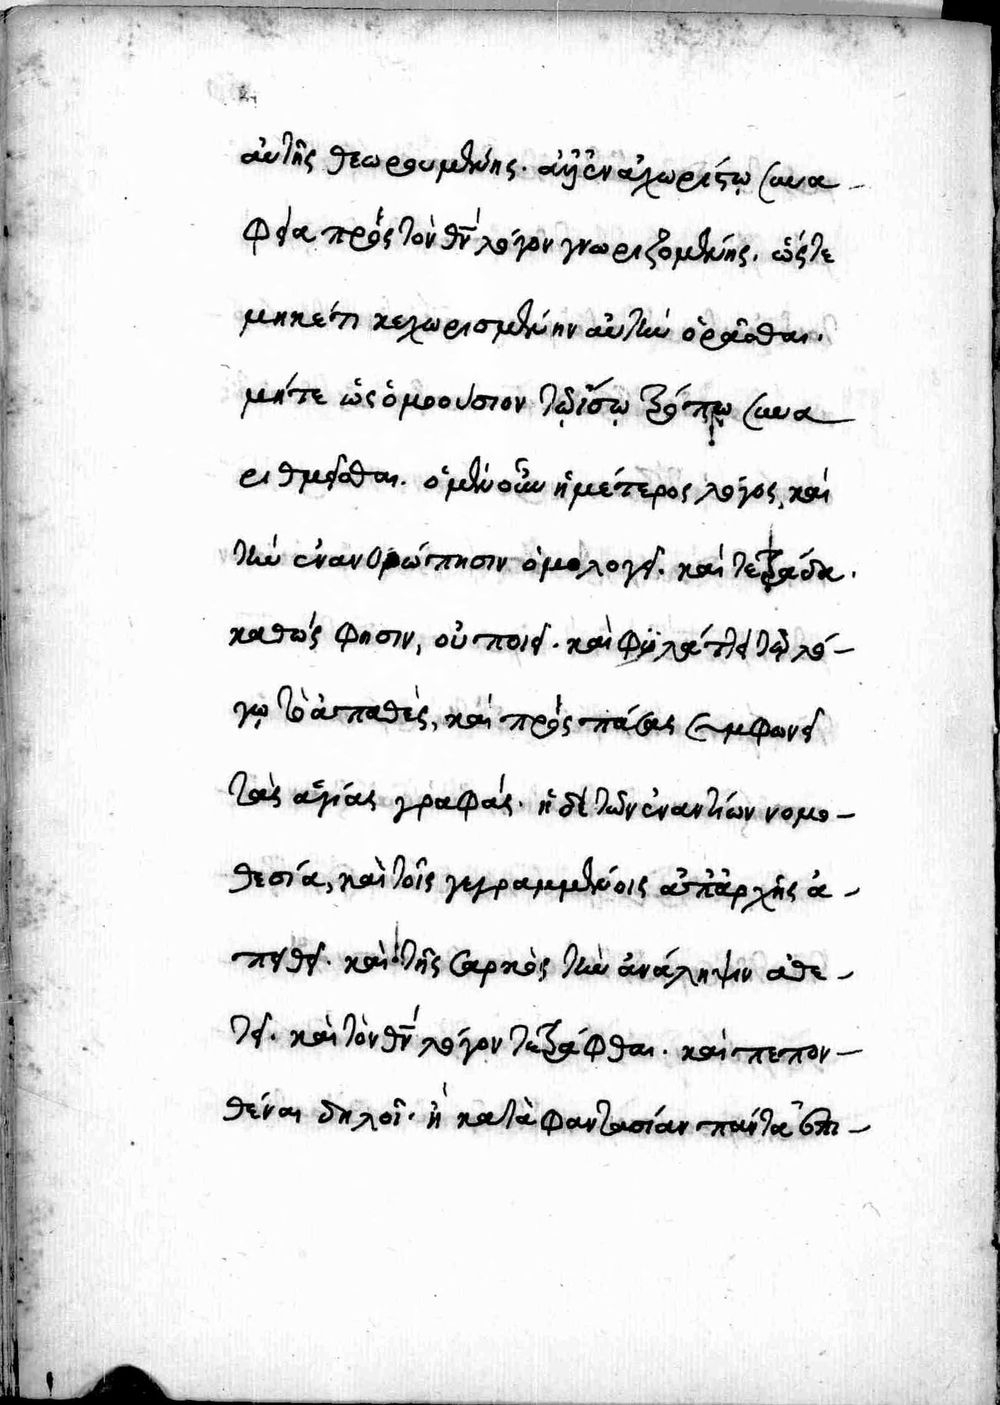 αὐτῆς θεωρουμένης. ἀλλ' ἐν ἀχωρίστῳ συνα
φεία πρὸς τὸν θν̄ λόγον γνωριζομένης. ὥστε
μηκέτι κεχωρισμένην αὐτὴν ὁρᾶσθαι.
μήτε ὡς ὁμοούσιον τῷ ἴσῳ τρόπῳ συνα
ριθμεῖσθαι. ὁ μὲν οὖν ἡμέτερος λόγος, καὶ
τὴν ἐνανθρώπησιν ὁμολογεῖ. καὶ τετράδα.
καθώς φησιν, οὐ ποιεῖ. καὶ φυλάττει τῷ λό–
γῳ τὸ ἀπαθὲς, καὶ πρὸς πάσας συμφωνεῖ
τὰς ἁγίας γραφάς. ἡ δὲ τῶν ἐναντίων νομο–
θεσία, καὶ τοῖς γεγραμμένοις ἀπ' ἀρχῆς ἀ–
πειθεῖ. καὶ τῆς σαρκὸς τὴν ἀνάληψιν ἀθε–
τεῖ. καὶ τὸν θν̄ λόγον τετράφθαι. καὶ πεπον–
θέναι δηλοῖ. ἢ κατὰ φαντασίαν πάντα ἐπι–